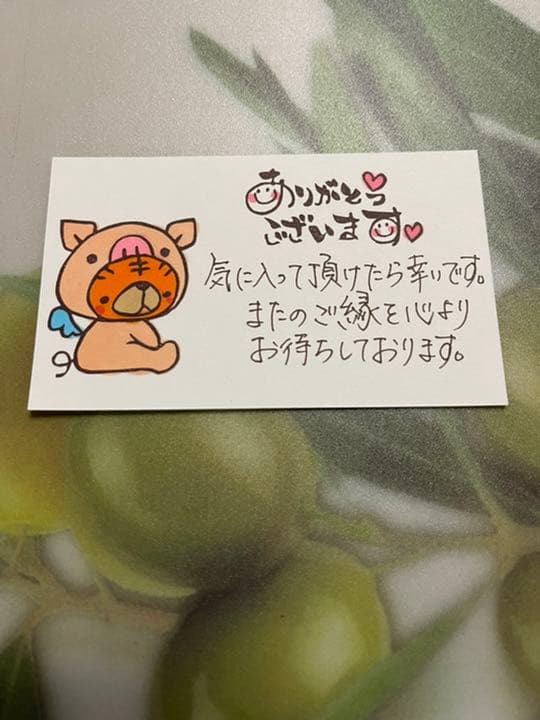 ありがとう
ございます
気に入って頂けたら幸いです。
またのご縁を心より
お待ちしております。